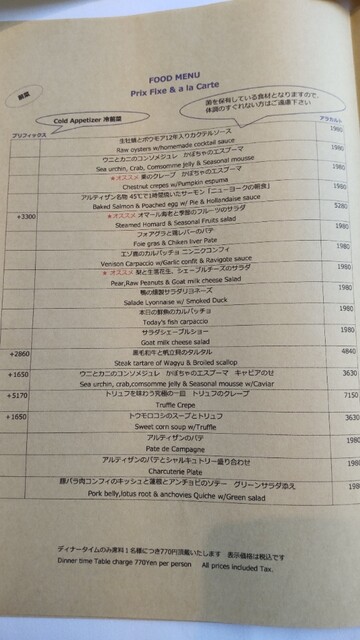 前菜
FOOD MENU
Prix Fixe & a la Carte
Cold Appetizer 冷前菜
菌を保有している食材となりますので、
体調のすぐれない方はご遠慮下さい
プリフィックス
アラカルト
生牡蠣とボウモア12年入りカクテルソース 1980
Raw oysters w/homemade cocktail sauce
ウニとカニのコンソメジュレ かぼちゃのエスプーマ 1980
Sea urchin, Crab, Comsomme jelly & Seasonal mousse
★オススメ 栗のクレープ かぼちゃのエスプーマ 1980
Chestnut crepes w/Pumpkin espuma
アルティザン名物 45℃で1時間焼いたサーモン「ニューヨークの朝食」 1980
Baked Salmon & Poached egg w/ Pie & Hollandaise sauce
+3300 ★オススメ オマール海老と季節のフルーツのサラダ 5280
Steamed Homard & Seasonal Fruits salad
フォアグラと鶏レバーのパテ 1980
Foie gras & Chiken liver Pate
エゾ鹿のカルパッチョ ニンニクコンフィ 1980
Venison Carpaccio w/Garlic confit & Ravigote sauce
★オススメ 梨と生落花生、シェーブルチーズのサラダ 1980
Pear,Raw Peanuts & Goat milk cheese Salad
鴨の燻製サラダリヨネーズ 1980
Salade Lyonnaise w/ Smoked Duck
本日の鮮魚のカルパッチョ 1980
Today's fish carpaccio
サラダシェーブルショー 1980
Goat milk cheese salad
+2860 黒毛和牛と帆立貝のタルタル 4840
Steak tartare of Wagyu & Broiled scallop
+1650 ウニとカニのコンソメジュレ かぼちゃのエスプーマ キャビアのせ 3630
Sea urchin, crab,comsomme jelly & Seasonal mousse w/Caviar
+5170 トリュフを味わう究極の一皿 トリュフのクレープ 7150
Truffle Crepe
+1650 トウモロコシのスープとトリュフ 3630
Sweet corn soup w/Truffle
アルティザンのパテ 1980
Pate de Campagne
アルティザンのパテとシャルキュトリー盛り合わせ 1980
Charcuterie Plate
豚バラ肉コンフィのキッシュと蓮根とアンチョビのソテー グリーンサラダ添え 1980
Pork belly,lotus root & anchovies Quiche w/Green salad
ディナータイムのみ席料１名様につき770円頂戴いたします 表示価格は税込です
Dinner time Table charge 770Yen per person All prices included Tax.